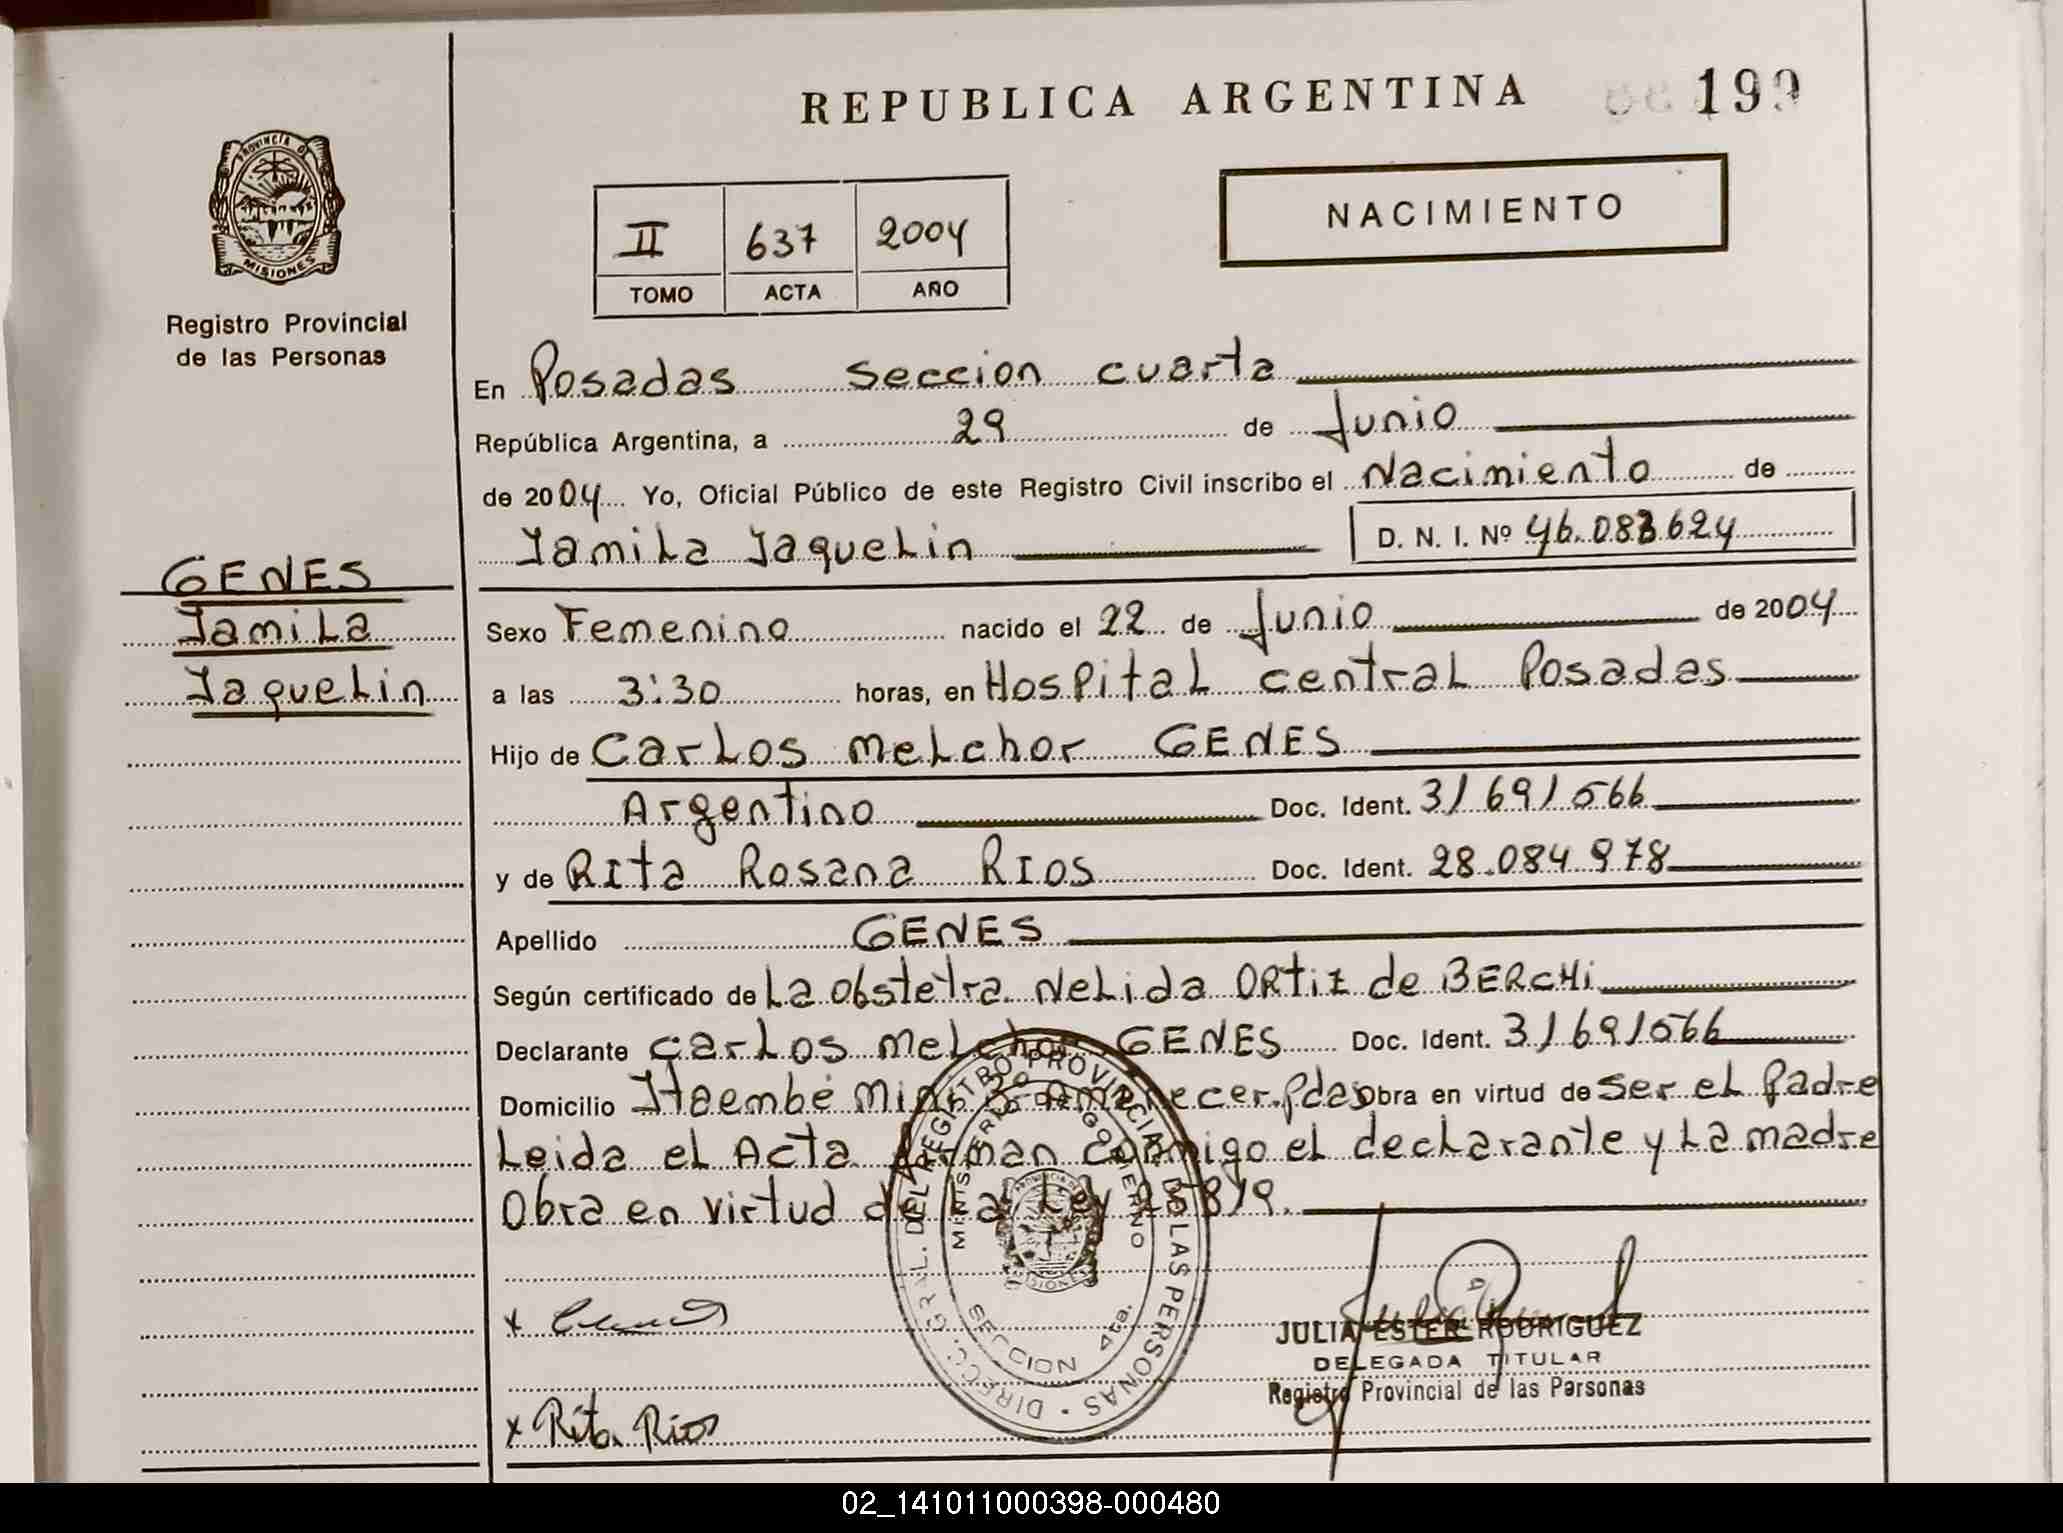 REPUBLICA ARGENTINA
199
PROVINCIA DE
MISIONES
Registro Provincial
de las Personas
NACIMIENTO
II 637 2004
TOMO ACTA AÑO
En Posadas Seccion cuarta
República Argentina, a 29 de Junio
de 2004 Yo, Oficial Público de este Registro Civil inscribo el Nacimiento de
Jamila Jaquelin D. N. I. Nº 46.083624
GENES
Jamila
Jaquelin
Sexo Femenino nacido el 22 de Junio de 2004
a las 3:30 horas, en Hospital central Posadas
Hijo de Carlos Melchor GENES
Argentino Doc. Ident. 31691566
y de Rita Rosana RIOS Doc. Ident. 28.084.978
Apellido GENES
Según certificado de La obstetra Nelida ORTIZ de BERCHI
Declarante Carlos Melchor GENES Doc. Ident. 31691566
Domicilio Itaembé Mini Pdas Obra en virtud de Ser el Padre
Leida el Acta firman conmigo el declarante y La madre
Obra en virtud de La Ley 25819.
DIRECC. GRAL. DEL REGISTRO PROVINCIAL DE LAS PERSONAS
MINISTERIO DE GOBIERNO
MISIONES
SECCION 4ta.
x
JULIA ESTER RODRIGUEZ
DELEGADA TITULAR
Registro Provincial de las Personas
x Rita Rios
02_141011000398-000480